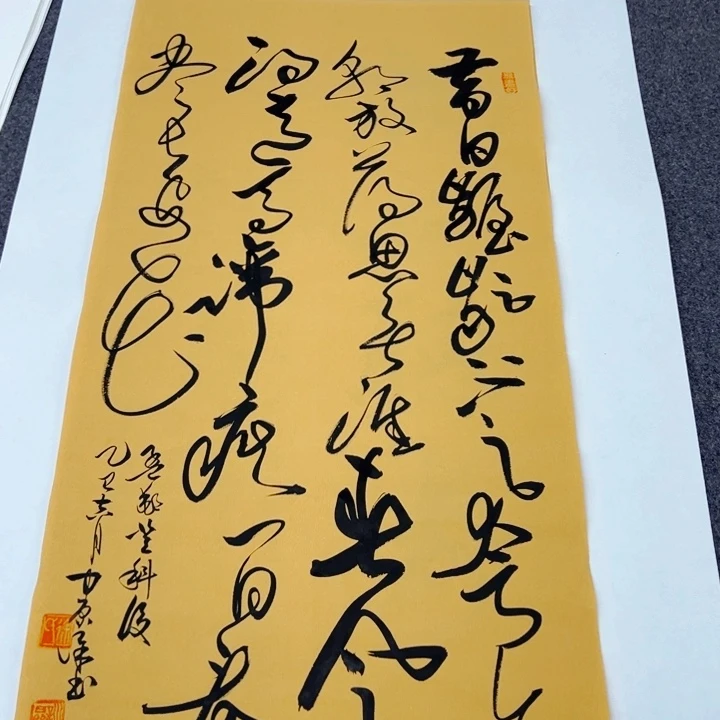 昔日龌龊不足夸
今朝放荡思无涯春风
得意马蹄疾一日看
尽长安花
孟郊登科后
乙巳六月